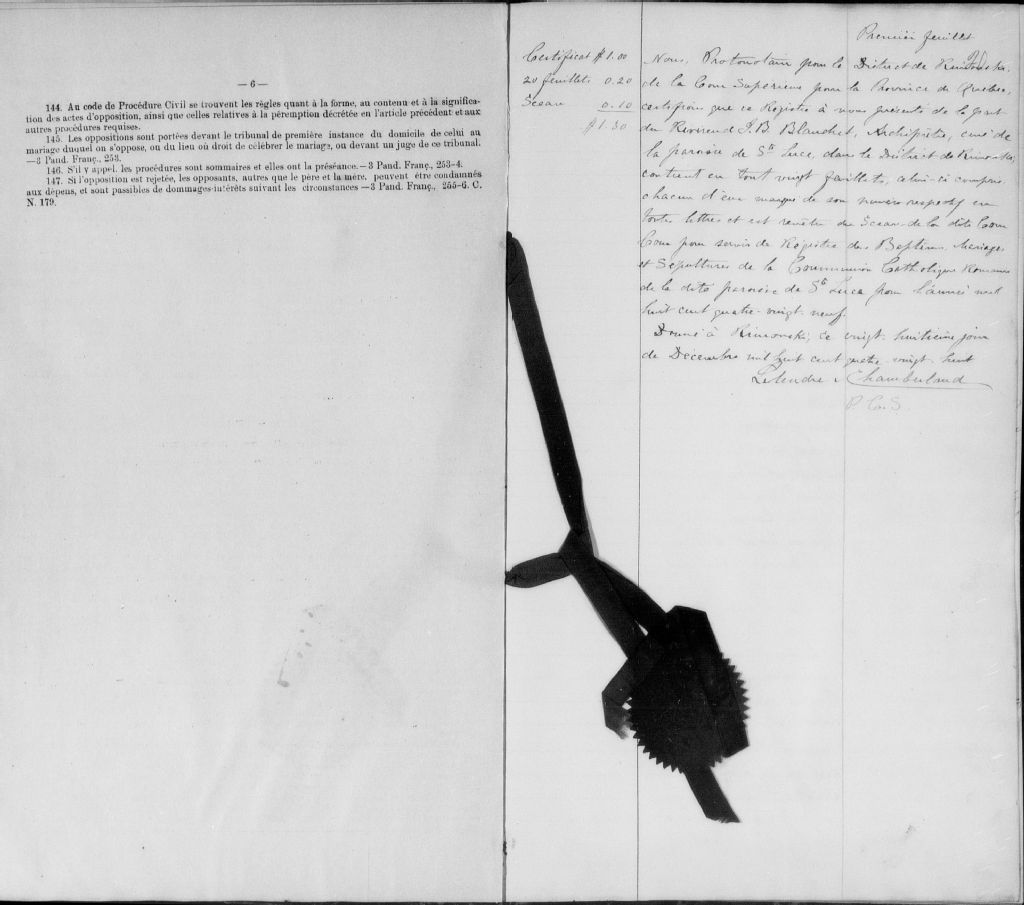 — 6 —
144. Au code de Procédure Civil se trouvent les règles quant à la forme, au contenu et à la significa-
tion des actes d'opposition, ainsi que celles relatives à la péremption décrétée en l'article précédent et aux
autres procédures requises.
145. Les oppositions sont portées devant le tribunal de première instance du domicile de celui au
mariage duquel on s'oppose, ou du lieu où droit de célébrer le mariage, ou devant un juge de ce tribunal.
—3 Pand. Franç., 253.
146. S'il y appel, les procédures sont sommaires et elles ont la préséance.—3 Pand. Franç., 253-4.
147. Si l'opposition est rejetée, les opposants, autres que le père et la mère, peuvent être condamnés
aux dépens, et sont passibles de dommages-intérêts suivant les circonstances —3 Pand. Franç., 255-6. C.
N. 179.
Premier feuillet
Certificat $1.00
20 feuillets 0.20
Sceau 0.10
$1.30
Nous, Protonotaire pour le District de Rimouski,
de la Cour Supérieure pour la Province de Québec,
certifions que ce Registre à nous présenté de la part
du Révérend J. B. Blanchet, Archiprêtre, curé de
la paroisse de St Luce, dans le District de Rimouski,
contient en tout vingt feuillets, celui-ci compris,
chacun d'eux marqué de son numéro respectif en
toutes lettres et est revêtu du Sceau de la dite Cour
Cour pour servir de Régistre des Baptêmes, Mariages
et Sépultures de la Communion Catholique Romaine
de la dite paroisse de St Luce pour l'année mil
huit cent quatre-vingt-neuf.
Donné à Rimouski, ce vingt-huitième jour
de Décembre mil huit cent quatre-vingt-huit
Letendre & Chamberland
P. C. S.